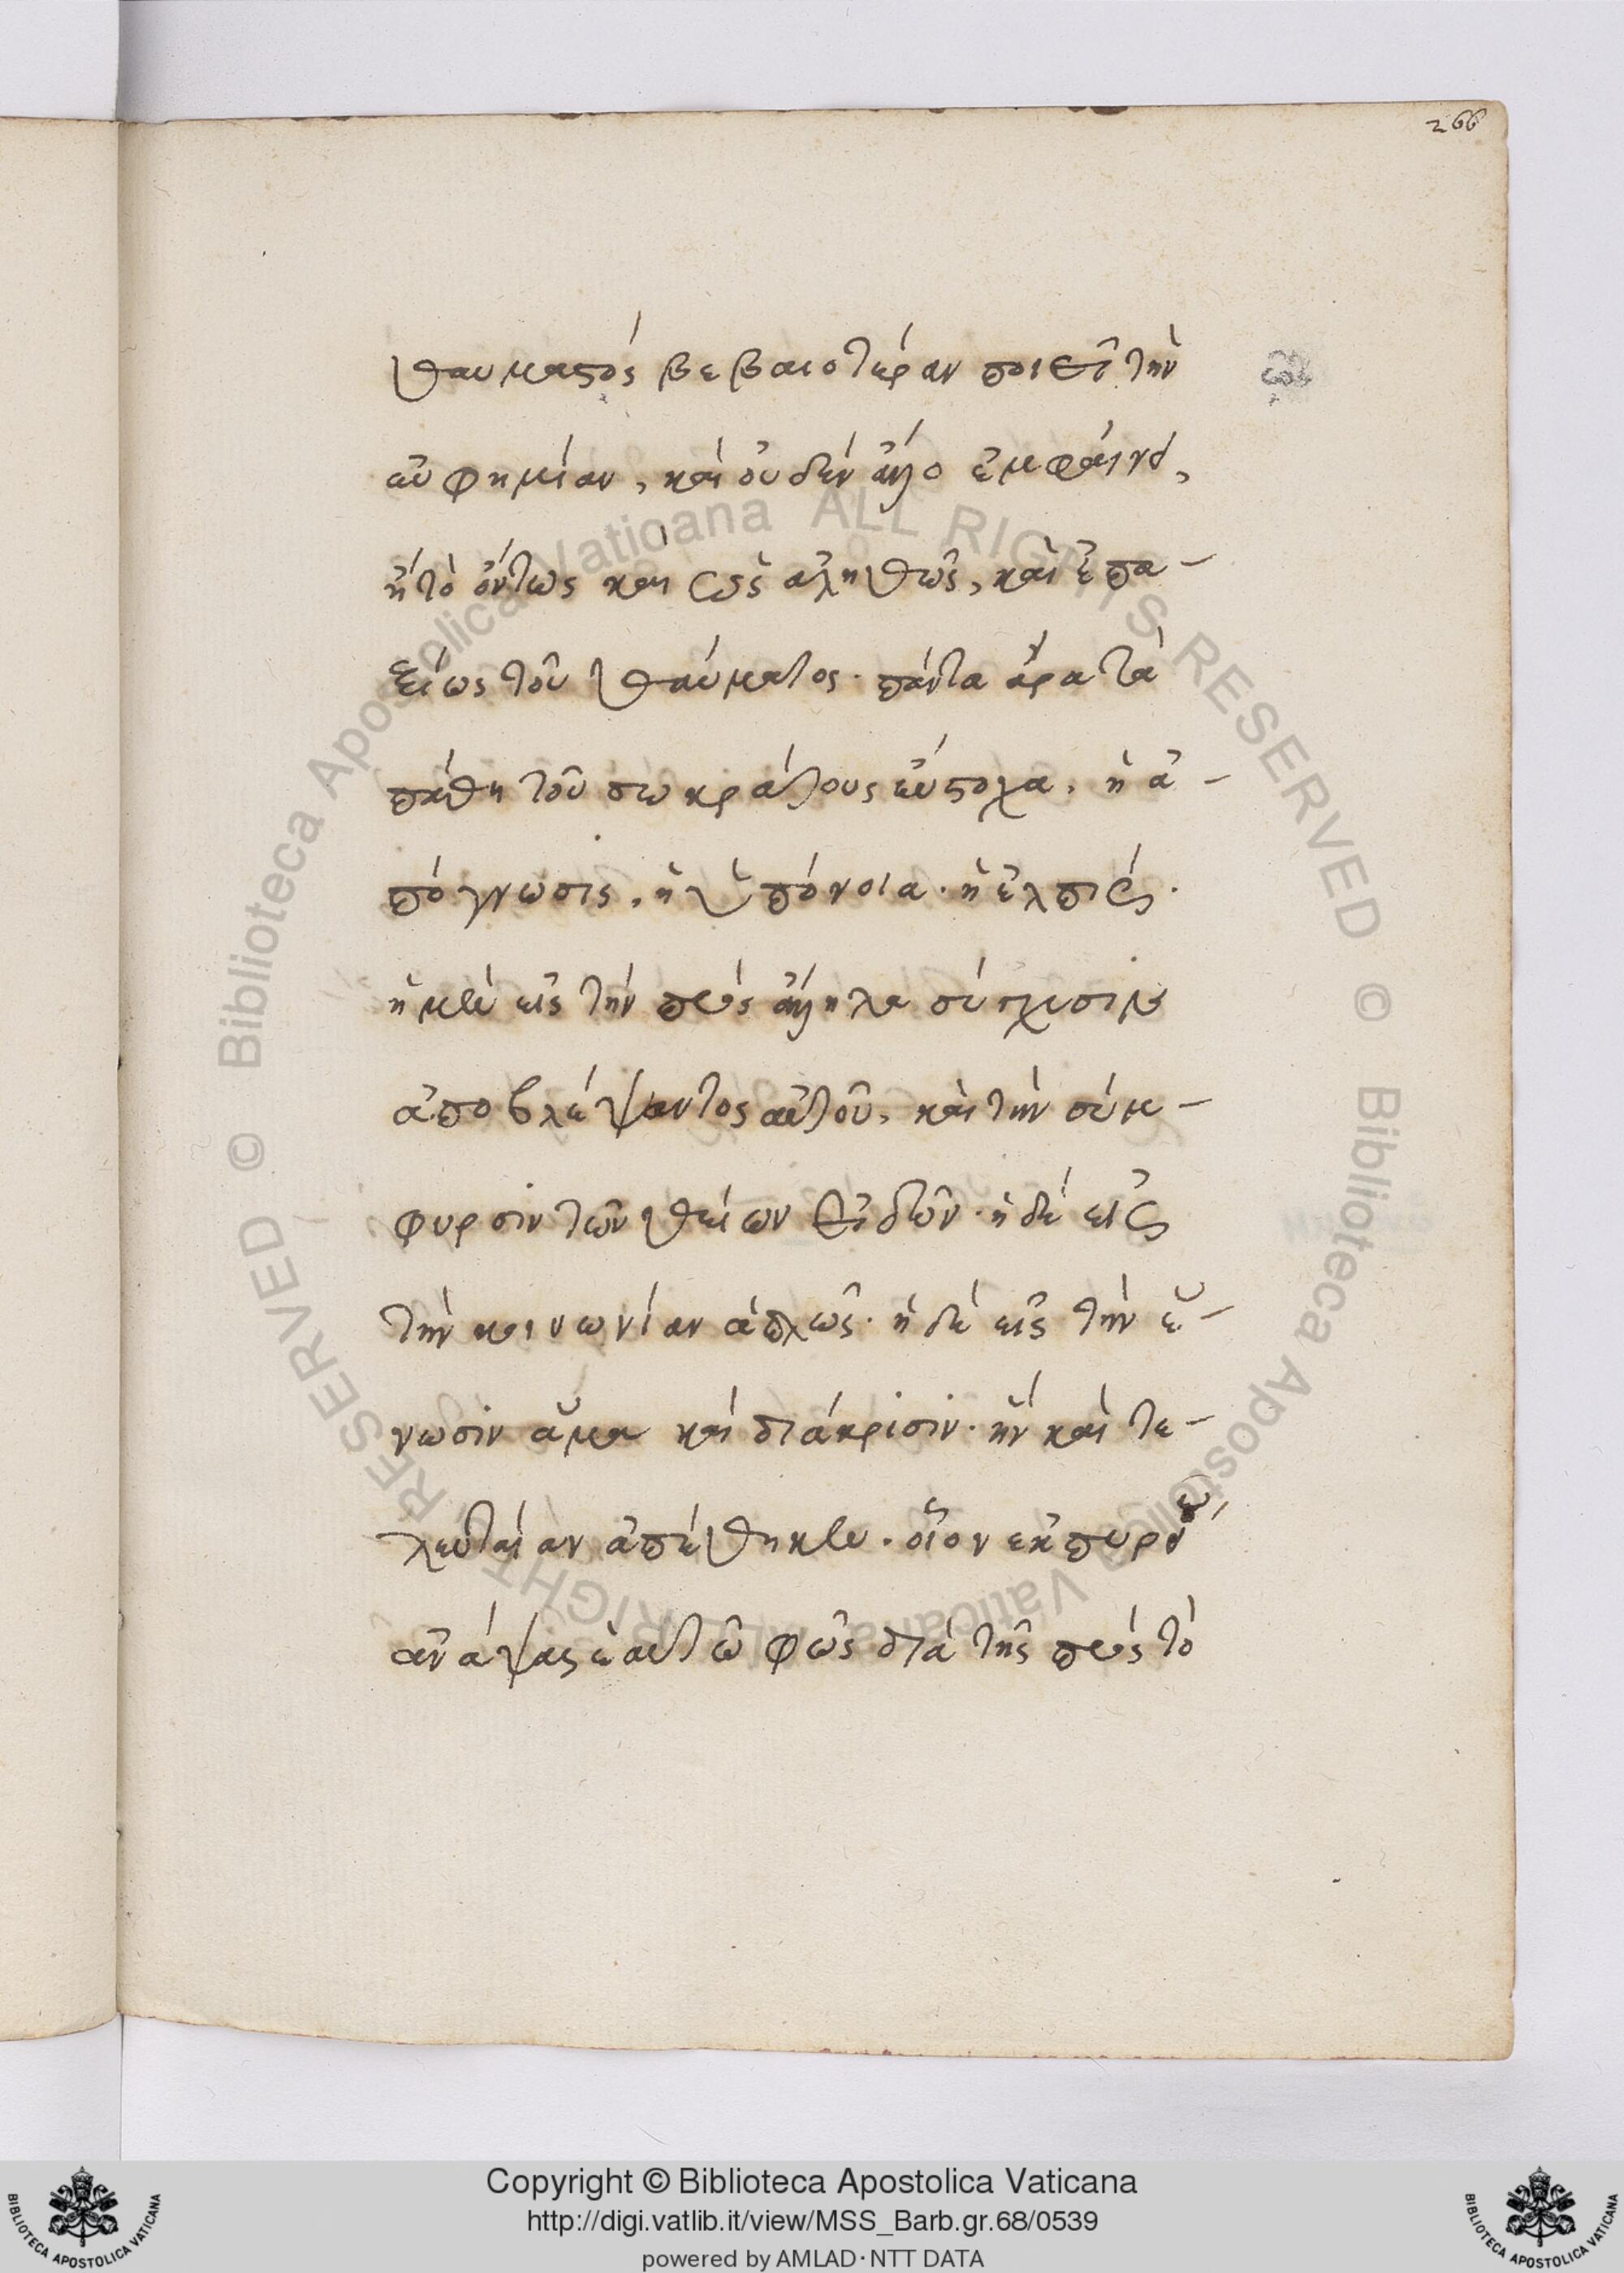 266
θαυμαστῶς βεβαιοτέραν ποιεῖ τὴν
εὐφημίαν, καὶ οὐδὲν ἄλλο ἐμφαίνει,
ἢ τὸ ὄντως καὶ ὡς ἀληθῶς, καὶ ἐπα-
ξίως τοῦ θαύματος· πάντα ἄρα τὰ
πάθη τοῦ σωκράτους εὔστοχα. ἡ ἀ-
πόγνωσις. ἡ ὑπόνοια· ἡ ἐλπίς·
ἡ μὲν εἰς τὴν πρὸς ἄλληλα σύγχυσιν
ἀποβλέψαντος αὐτοῦ, καὶ τὴν σύμ-
φυρσιν τῶν θείων εἰδῶν· ἡ δὲ εἰς
τὴν κοινωνίαν ἁπλῶς· ἡ δὲ εἰς τὴν ἕ-
νωσιν ἅμα καὶ διάκρισιν· ἣν καὶ τε-
λευταίαν ἀπέθηκεν· οἷον ἐκ πυρείων
ἀνάψας ἑαυτῷ φῶς διὰ τῆς πρὸς τὸ
Copyright © Biblioteca Apostolica Vaticana
http://digi.vatlib.it/view/MSS_Barb.gr.68/0539
powered by AMLAD·NTT DATA
BIBLIOTECA APOSTOLICA VATICANA
BIBLIOTECA APOSTOLICA VATICANA
© Biblioteca Apostolica Vaticana ALL RIGHTS RESERVED © Biblioteca Apostolica Vaticana ALL RIGHTS RESERVED